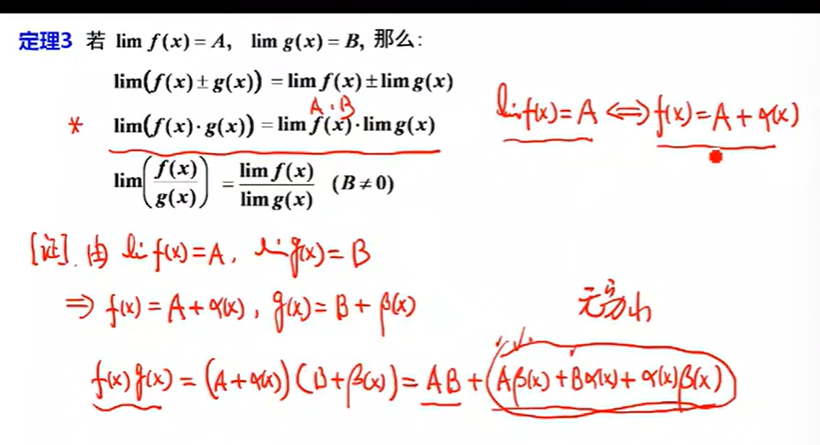 定理3 若 lim f(x) = A, lim g(x) = B, 那么:
lim(f(x) ± g(x)) = lim f(x) ± lim g(x)
A · B
* lim(f(x) · g(x)) = lim f(x) · lim g(x)
lim f(x) = A ⟺ f(x) = A + α(x)
lim(f(x)/g(x)) = lim f(x)/lim g(x) (B ≠ 0)
[证]. 由 lim f(x) = A, lim g(x) = B
⇒ f(x) = A + α(x), g(x) = B + β(x)
无穷小
f(x) g(x) = (A + α(x)) (B + β(x)) = AB + (Aβ(x) + Bα(x) + α(x)β(x))